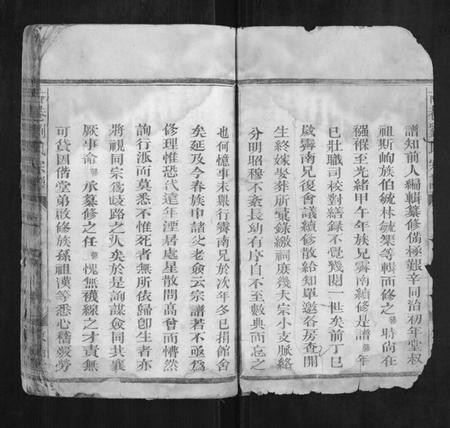 譜知前人編輯纂修備極艱辛同治初年堂叔
祖斯峋族伯毓林毓榘等輯而修之 時尚在
襁褓至光緒甲午年族兄霽南續修是譜 年
已壯職司校對結錄不覺幾閱一世矣前丁巳
歲霽南兄復會議續修散給知單邀各房查開
生終嫁娶葬所彙錄繳祠庶幾大宗小支脈絡
分明昭穆不紊長幼有序自不至數典而忘之
也何憶事未舉行霽南兄於次年冬已捐館舍
矣延及今春族中諸父老僉云宗譜若不亟為
修理惟恐代遠年湮居處星散問高曾而懵然
詢行派而莫悉不惟死者無所依歸卽生者亦
將視同宗為歧路之人矣於是詢謀僉同共襄
厥事命 承纂修之任 愧無襪線之才責無
可貸因偕堂弟啟修族孫祖漢等悉心稽覈勞